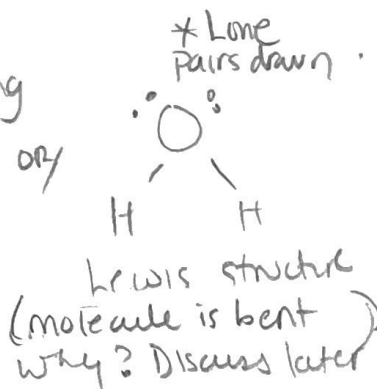 * Lone
pairs drawn.
g
or
O
H H
Lewis structure
(molecule is bent)
why? Discuss later